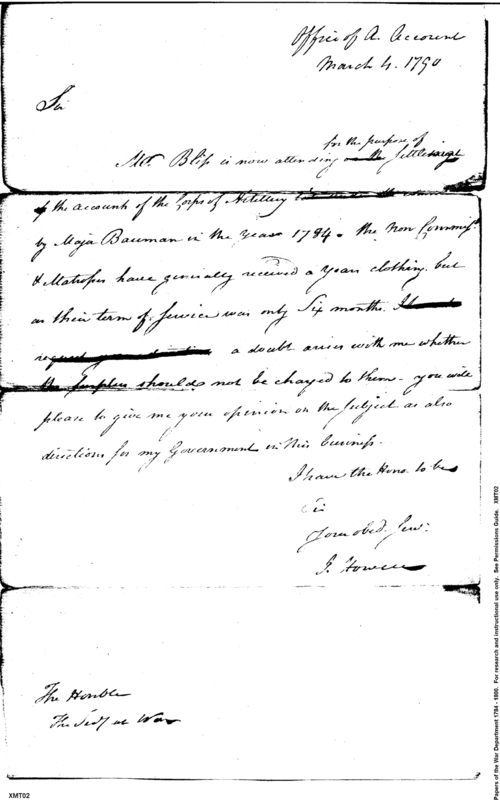 Office of A. Account
March 4. 1790
Sir
for the purpose of
Mr. Bliss is now attending on the Settling
of the accounts of the Corps of Artillery
by Major Bauman in the Year 1784. the Non Commisd.
& Matrosses have generally received a years clothing. but
as their term of Service was only Six months.
a doubt arises with me whether
the Surplus should not be charged to them - you will
please to give me your opinion on the Subject as also
directions for my Government in this business.
I have the Honor to be
Sir
Your obed. Serv.
J. Howell
The Honble
The Secy at War
XMT02
Papers of the War Department 1784 - 1800. For research and instructional use only. See Permissions Guide. XMT02